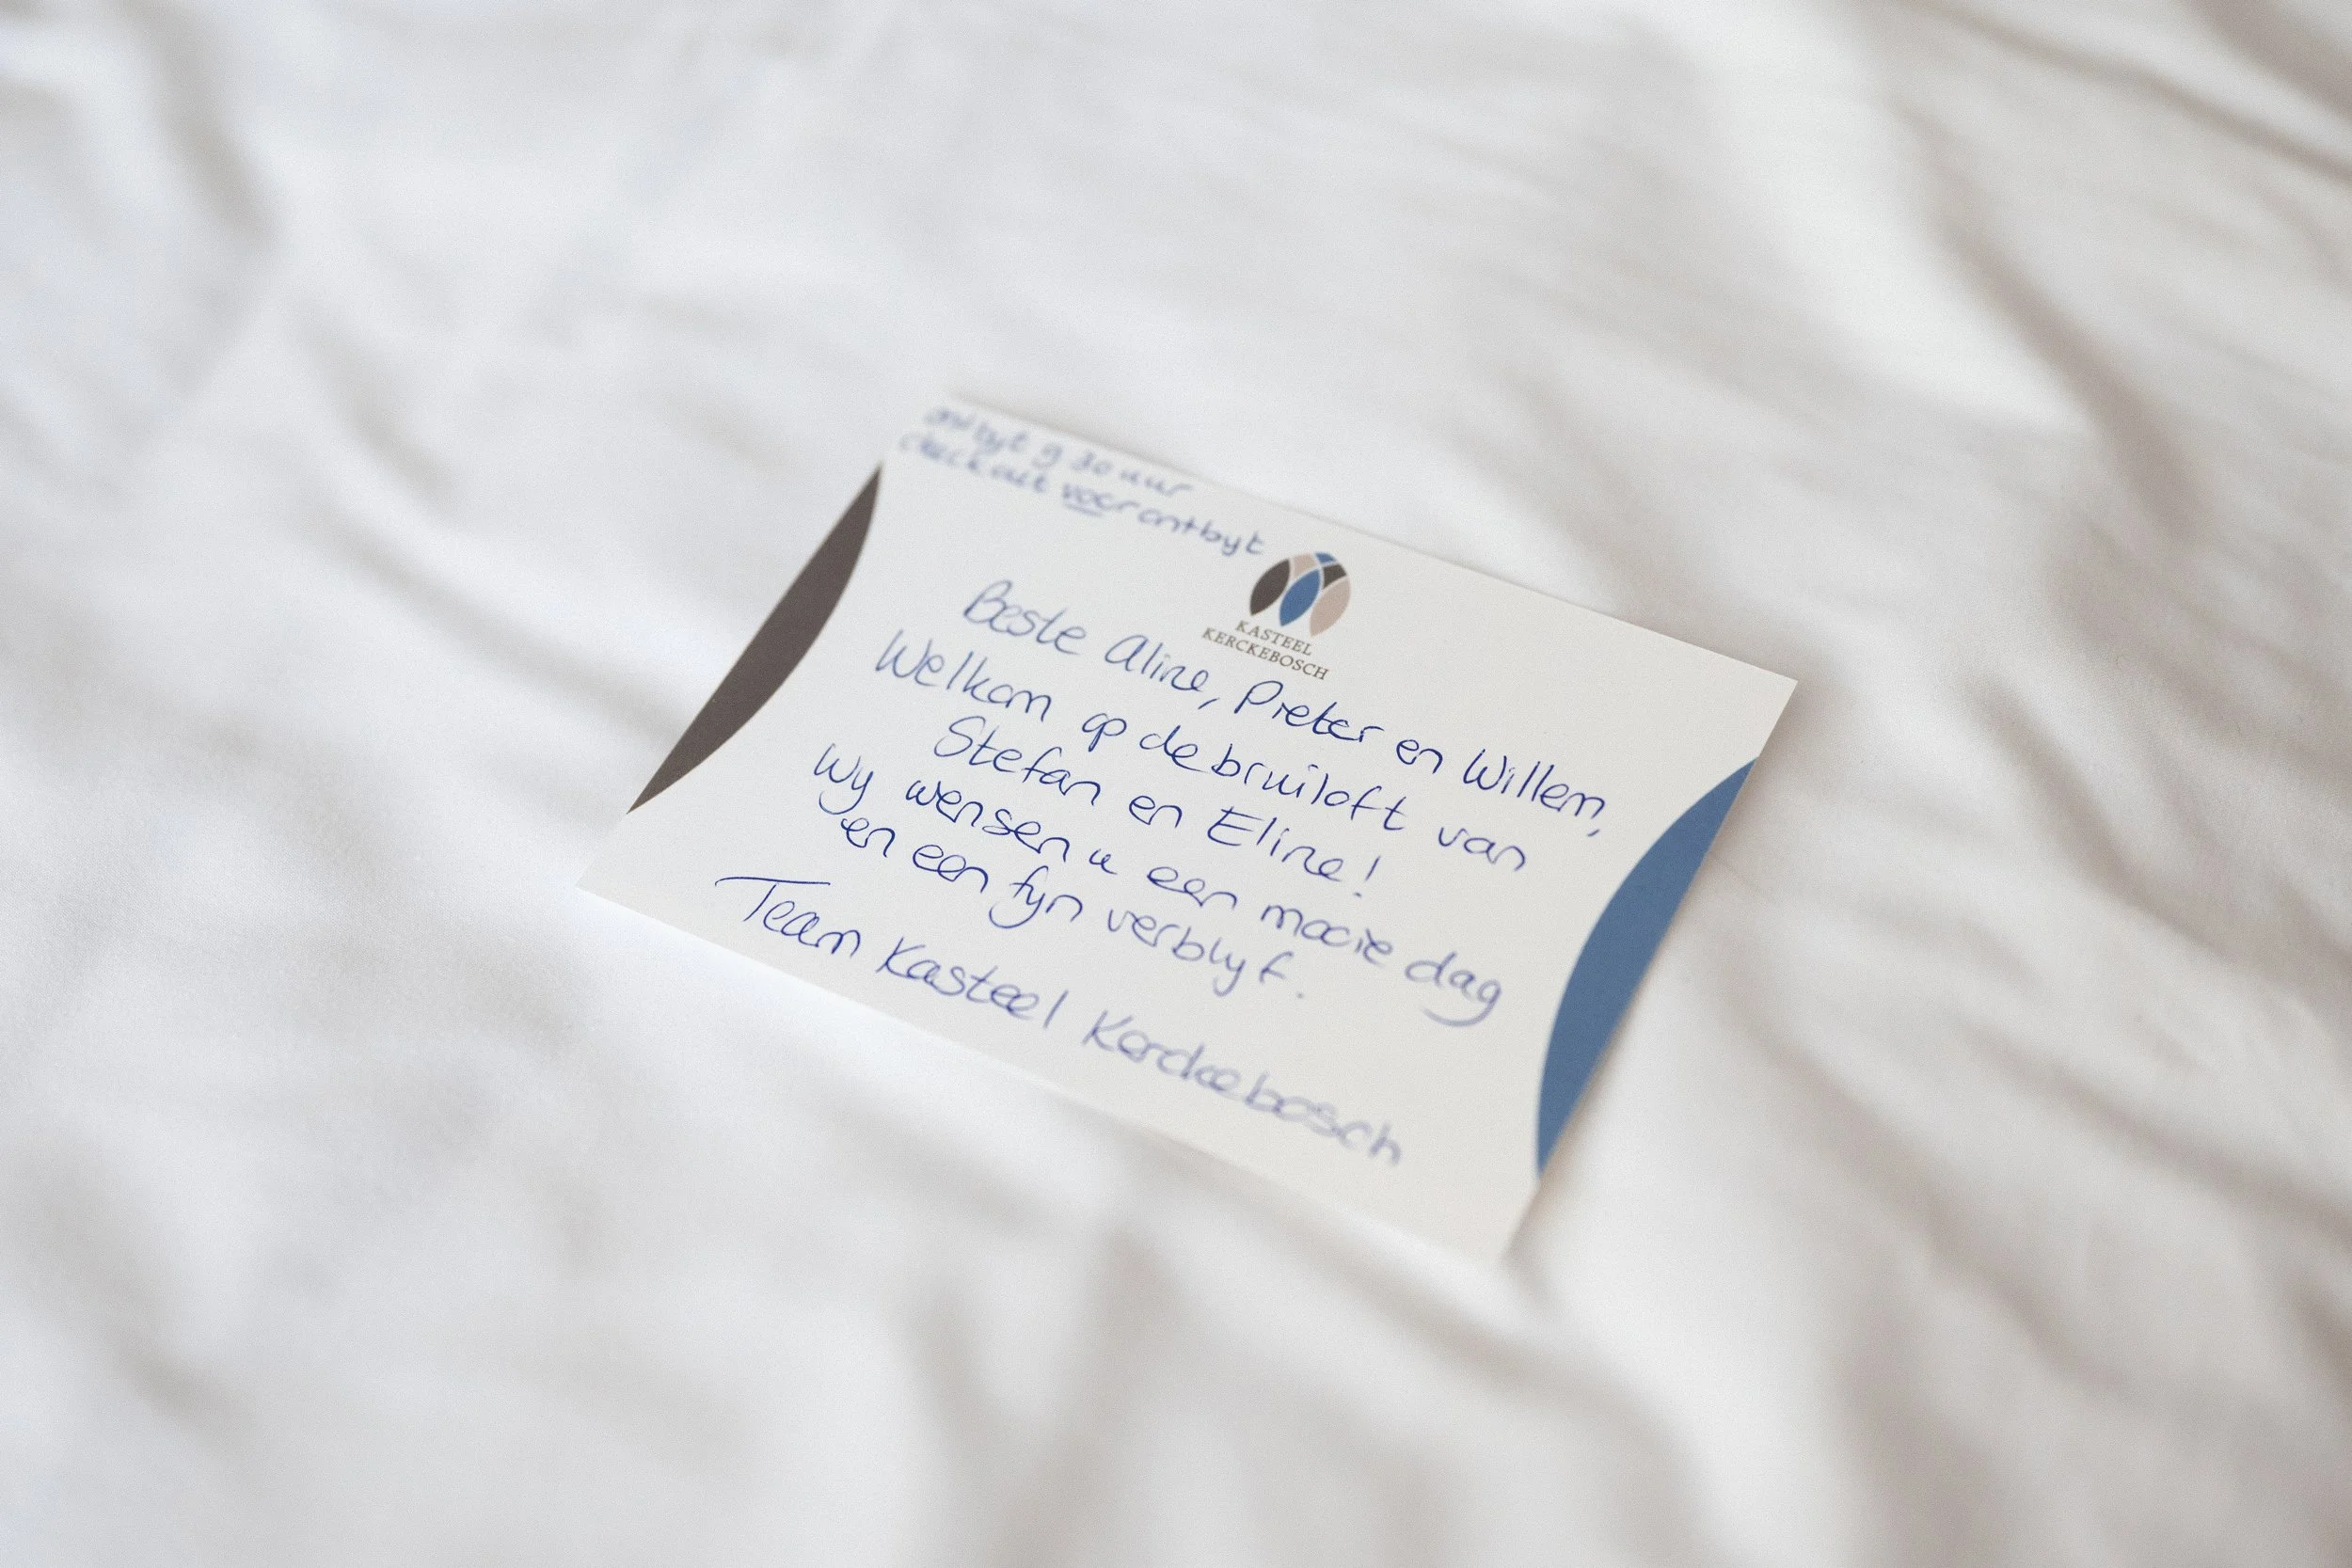 ontbyt 9 30 uur
check out voor ontbyt
KASTEEL
KERCKEBOSCH
Beste Aline, Pieter en Willem,
Welkom op de bruiloft van
Stefan en Eline!
Wy wensen u een mooie dag
en een fyn verblyf.
Team Kasteel Kerckebosch